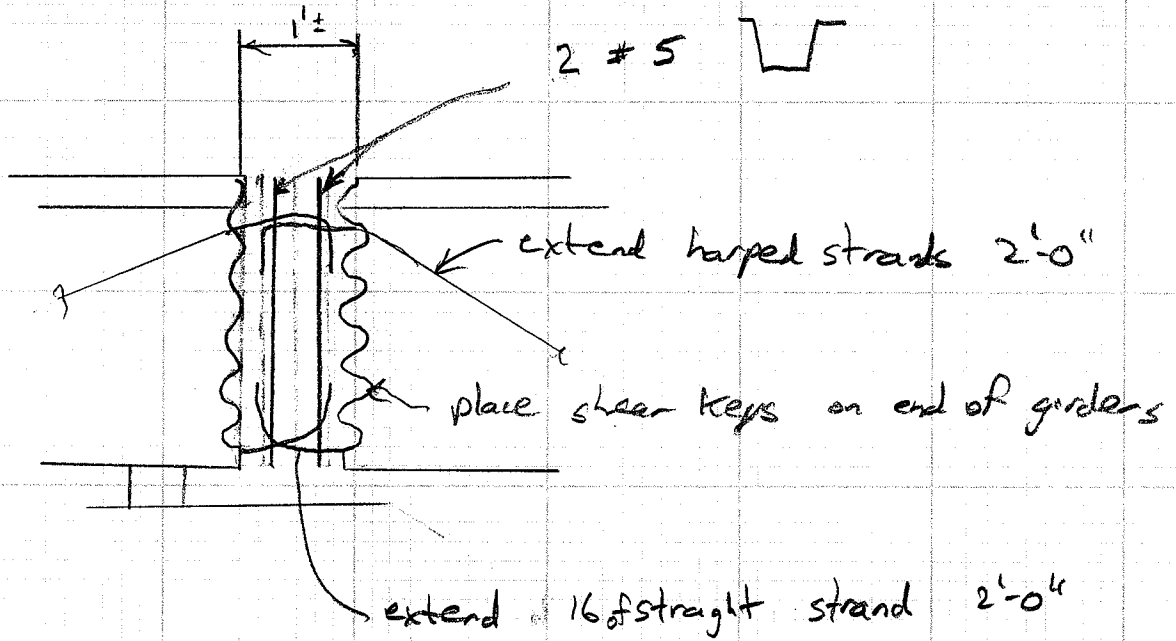 1'±
2 # 5
extend harped strands 2'-0"
place shear keys on end of girders
extend 16 of straght strand 2'-0"